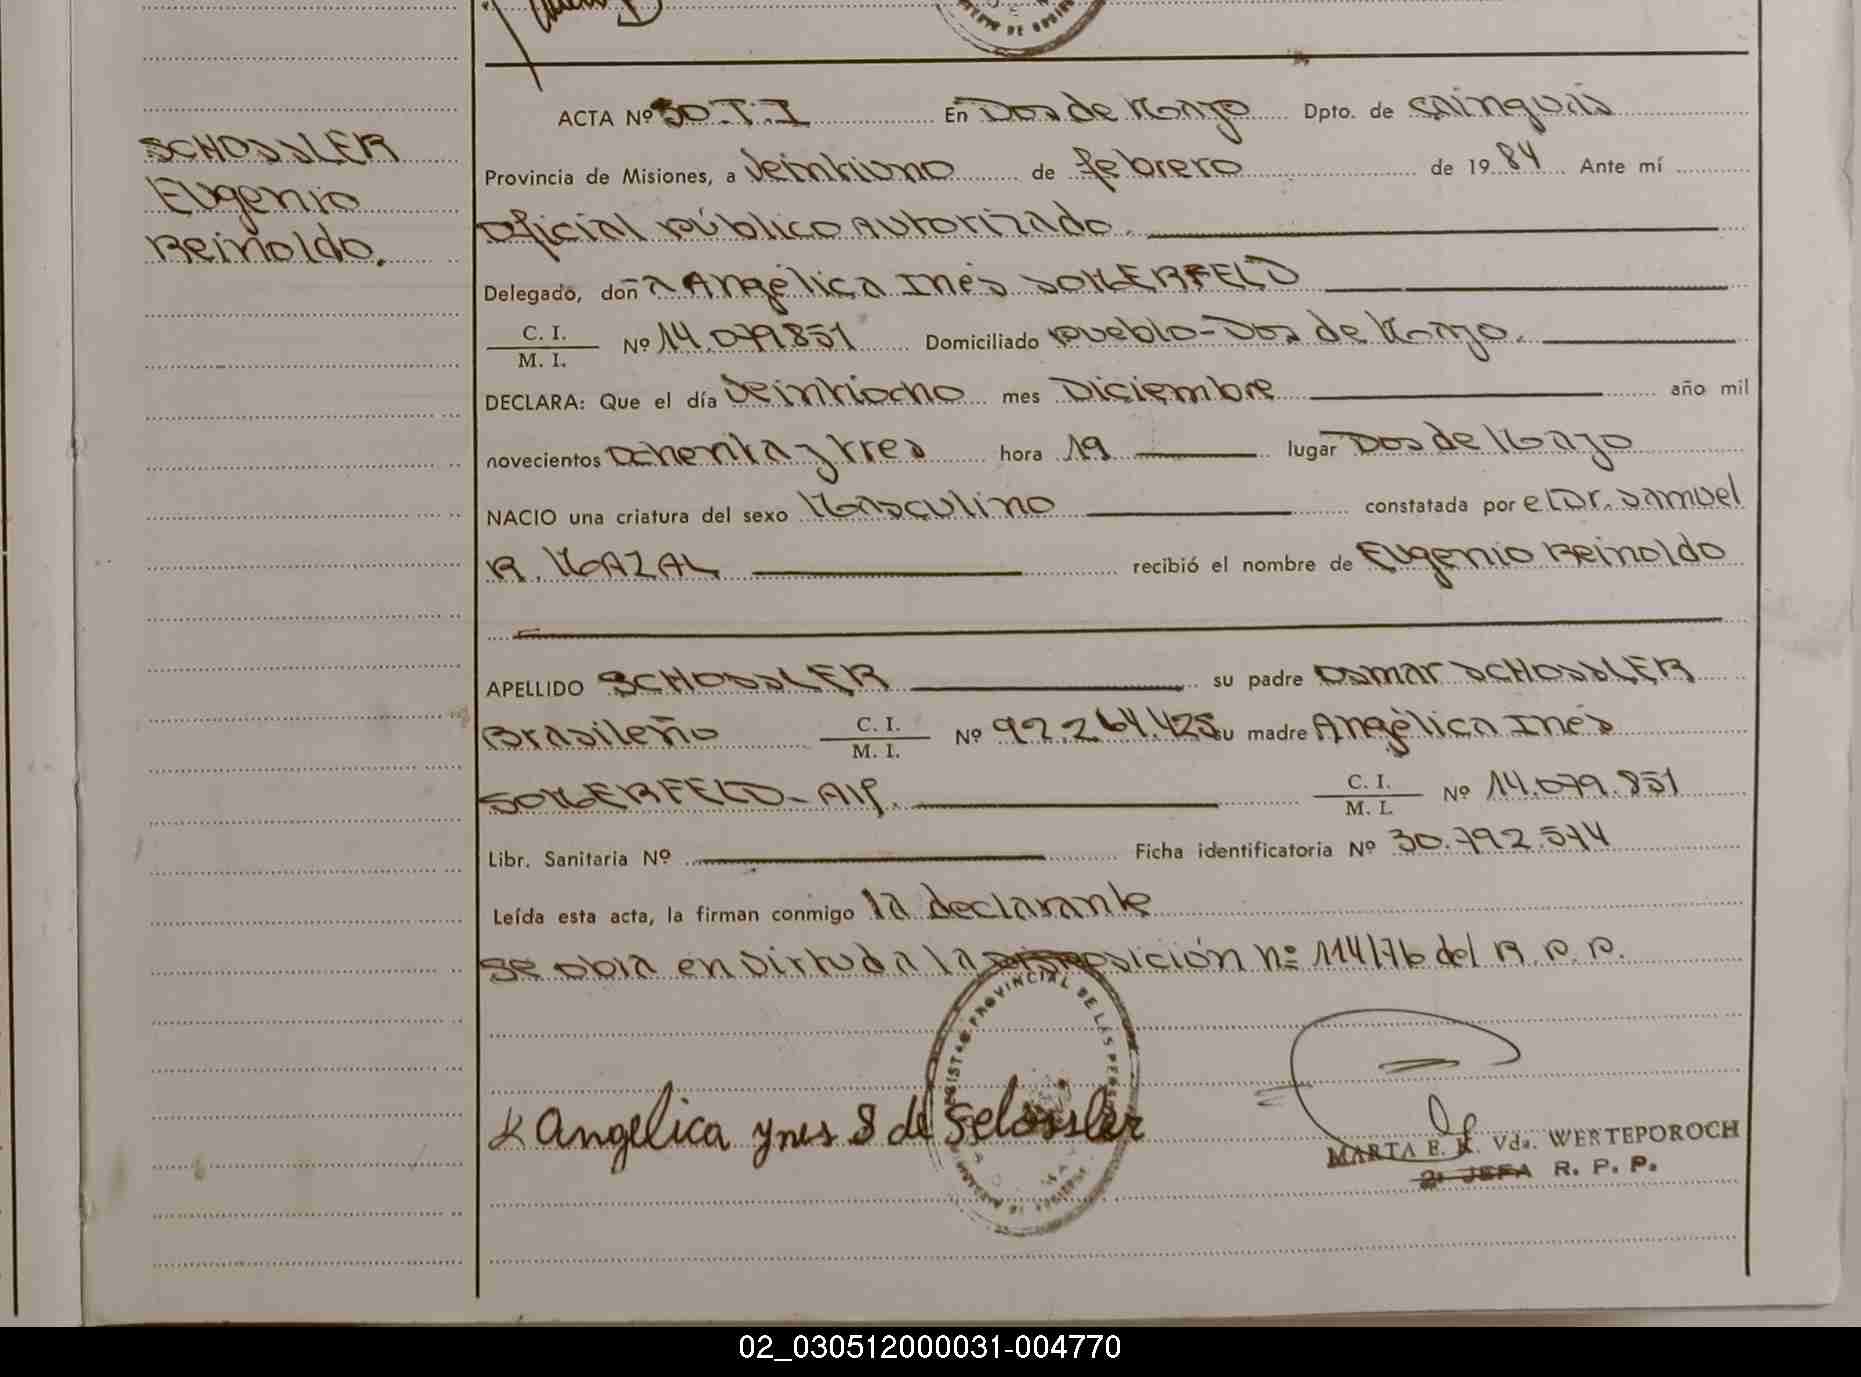 SCHOSSLER
Eugenio
Reinoldo.
ACTA Nº 50.T.I En Dos de Mayo Dpto. de Cainguás
Provincia de Misiones, a Veintiuno de febrero de 1984 Ante mí
Oficial público autorizado.
Delegado, doña Angélica Inés SOMERFELD
C. I.
M. I. Nº 14.079851 Domiciliado pueblo-Dos de Mayo.
DECLARA: Que el día Veintiocho mes Diciembre año mil
novecientos Ochenta y tres hora 19 lugar Dos de Mayo
NACIO una criatura del sexo Masculino constatada por el Dr. Samuel
R. MAZAL recibió el nombre de Eugenio Reinoldo
APELLIDO SCHOSSLER su padre Osmar SCHOSSLER
Brasileño C. I.
M. I. Nº 92.264.425 su madre Angélica Inés
SOMERFELD - Arg. C. I.
M. I. Nº 14.079.851
Libr. Sanitaria Nº Ficha identificatoria Nº 30.792.574
Leída esta acta, la firman conmigo la declarante
se obia en virtud a la disposición nº 114/76 del R.P.P.
REGISTRO PROVINCIAL DE LAS PERS
Angelica ynes S de Schossler
MARTA E. K. Vda. WERTEPOROCH
2ª JEFA R. P. P.
02_030512000031-004770